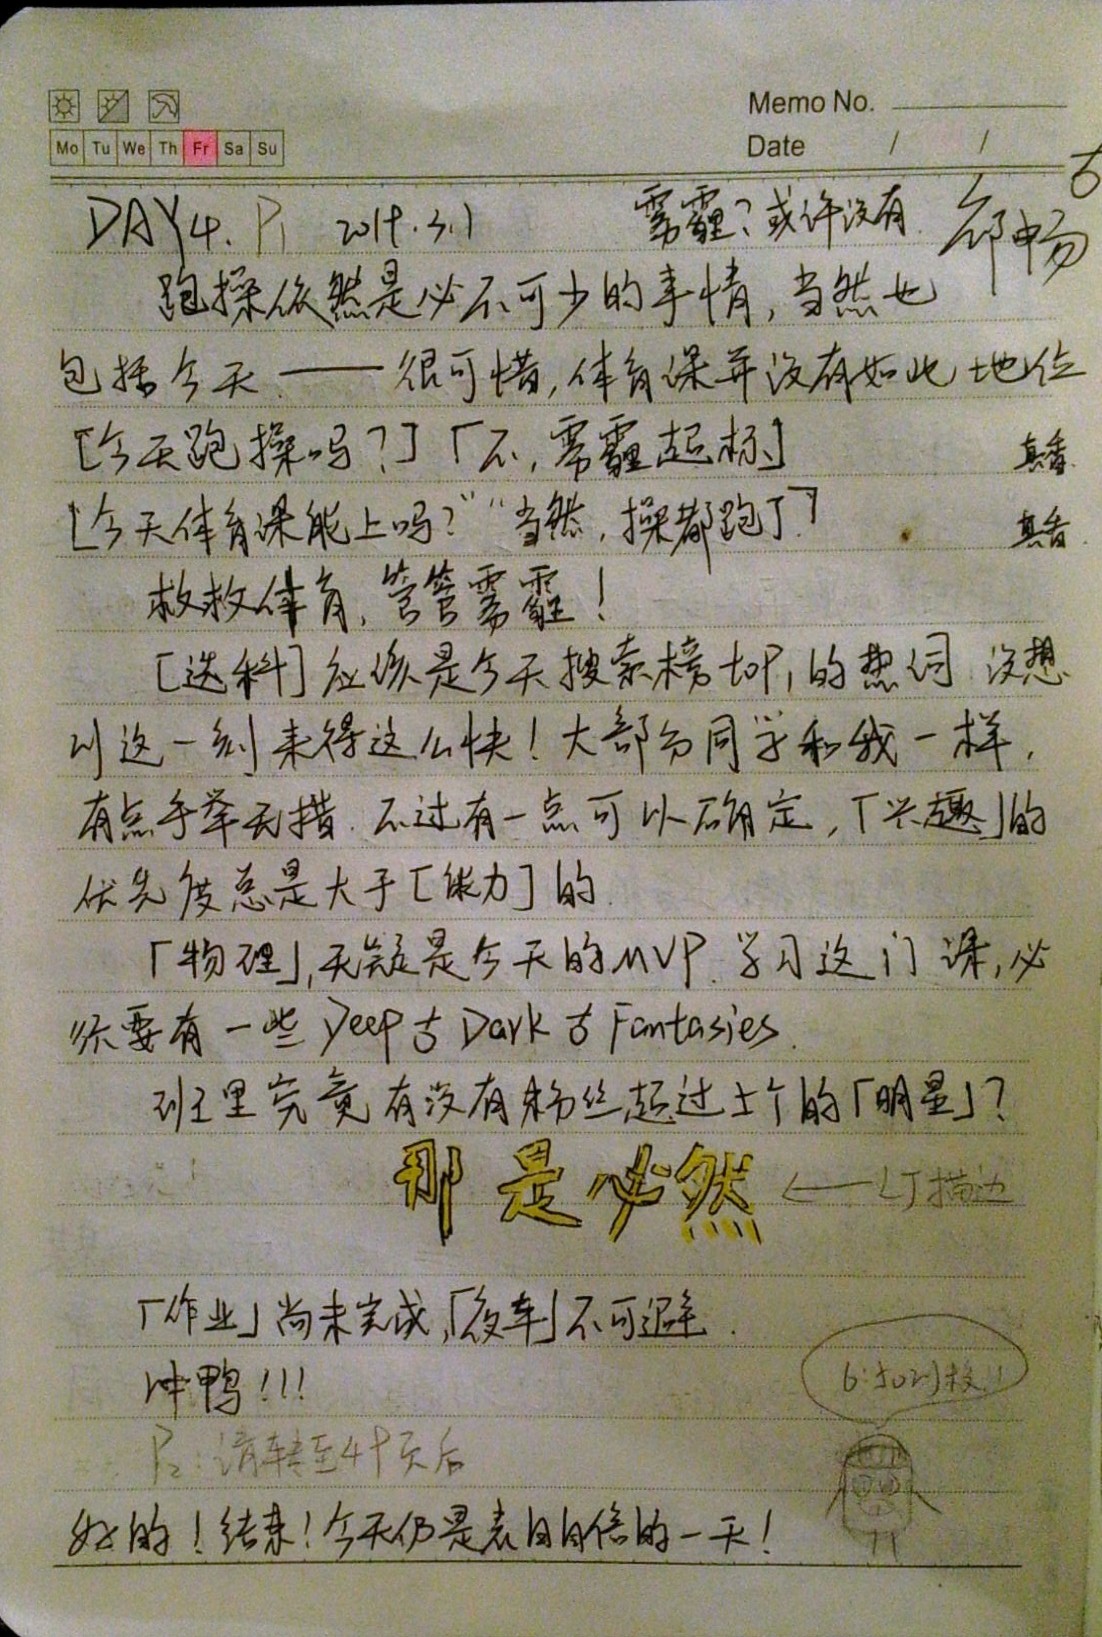 Memo No.
Mo Tu We Th Fr Sa Su
Date / /
DAY4. P1 2019.3.1 雾霾?或许没有
跑操依然是必不可少的事情,当然也
包括今天.——很可惜,体育课并没有如此地位
[今天跑操吗?]「不,雾霾超标」 真香.
[今天体育课能上吗?" "当然,操都跑了」 真香.
救救体育,管管雾霾!
[选科]应该是今天搜索榜top1的热词 没想
到这一刻来得这么快!大部分同学和我一样,
有点手举无措.不过有一点可以确定,「兴趣」的
优先度总是大于[能力]的.
「物理」,无疑是今天的MVP.学习这门课,必
须要有一些 Deep♂Dark♂Fantasies.
班里究竟有没有粉丝超过十个的「明星」?
那是必然 ← LJ描边
「作业」尚未完成,「夜车」不可避.
冲鸭!!!
6:50到校!!
P2:请转至49页后
好的!结束!今天仍是表白自信的一天!